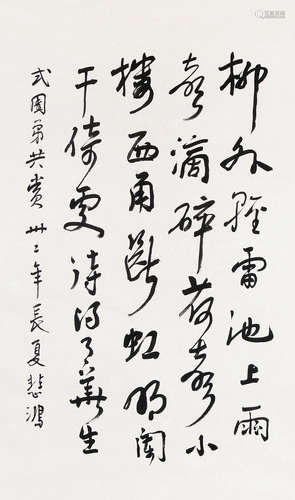 柳外轻雷池上雨
声滴碎荷声小
楼西角断虹明阑
干倚处待得月华生
式园弟共赏 卅二年长夏悲鸿